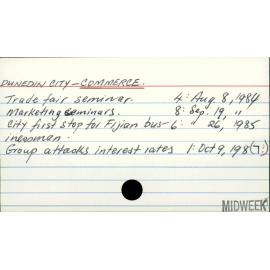 DUNEDIN CITY - COMMERCE.
Trade fair seminar. 4: Aug 8, 1984
Marketing seminars. 8: Sep. 19, "
City first stop for Fijian bus- 6: " 26, 1985
inessman.
Group attacks interest rates 1: Oct 9, 198(7:)
MIDWEEK